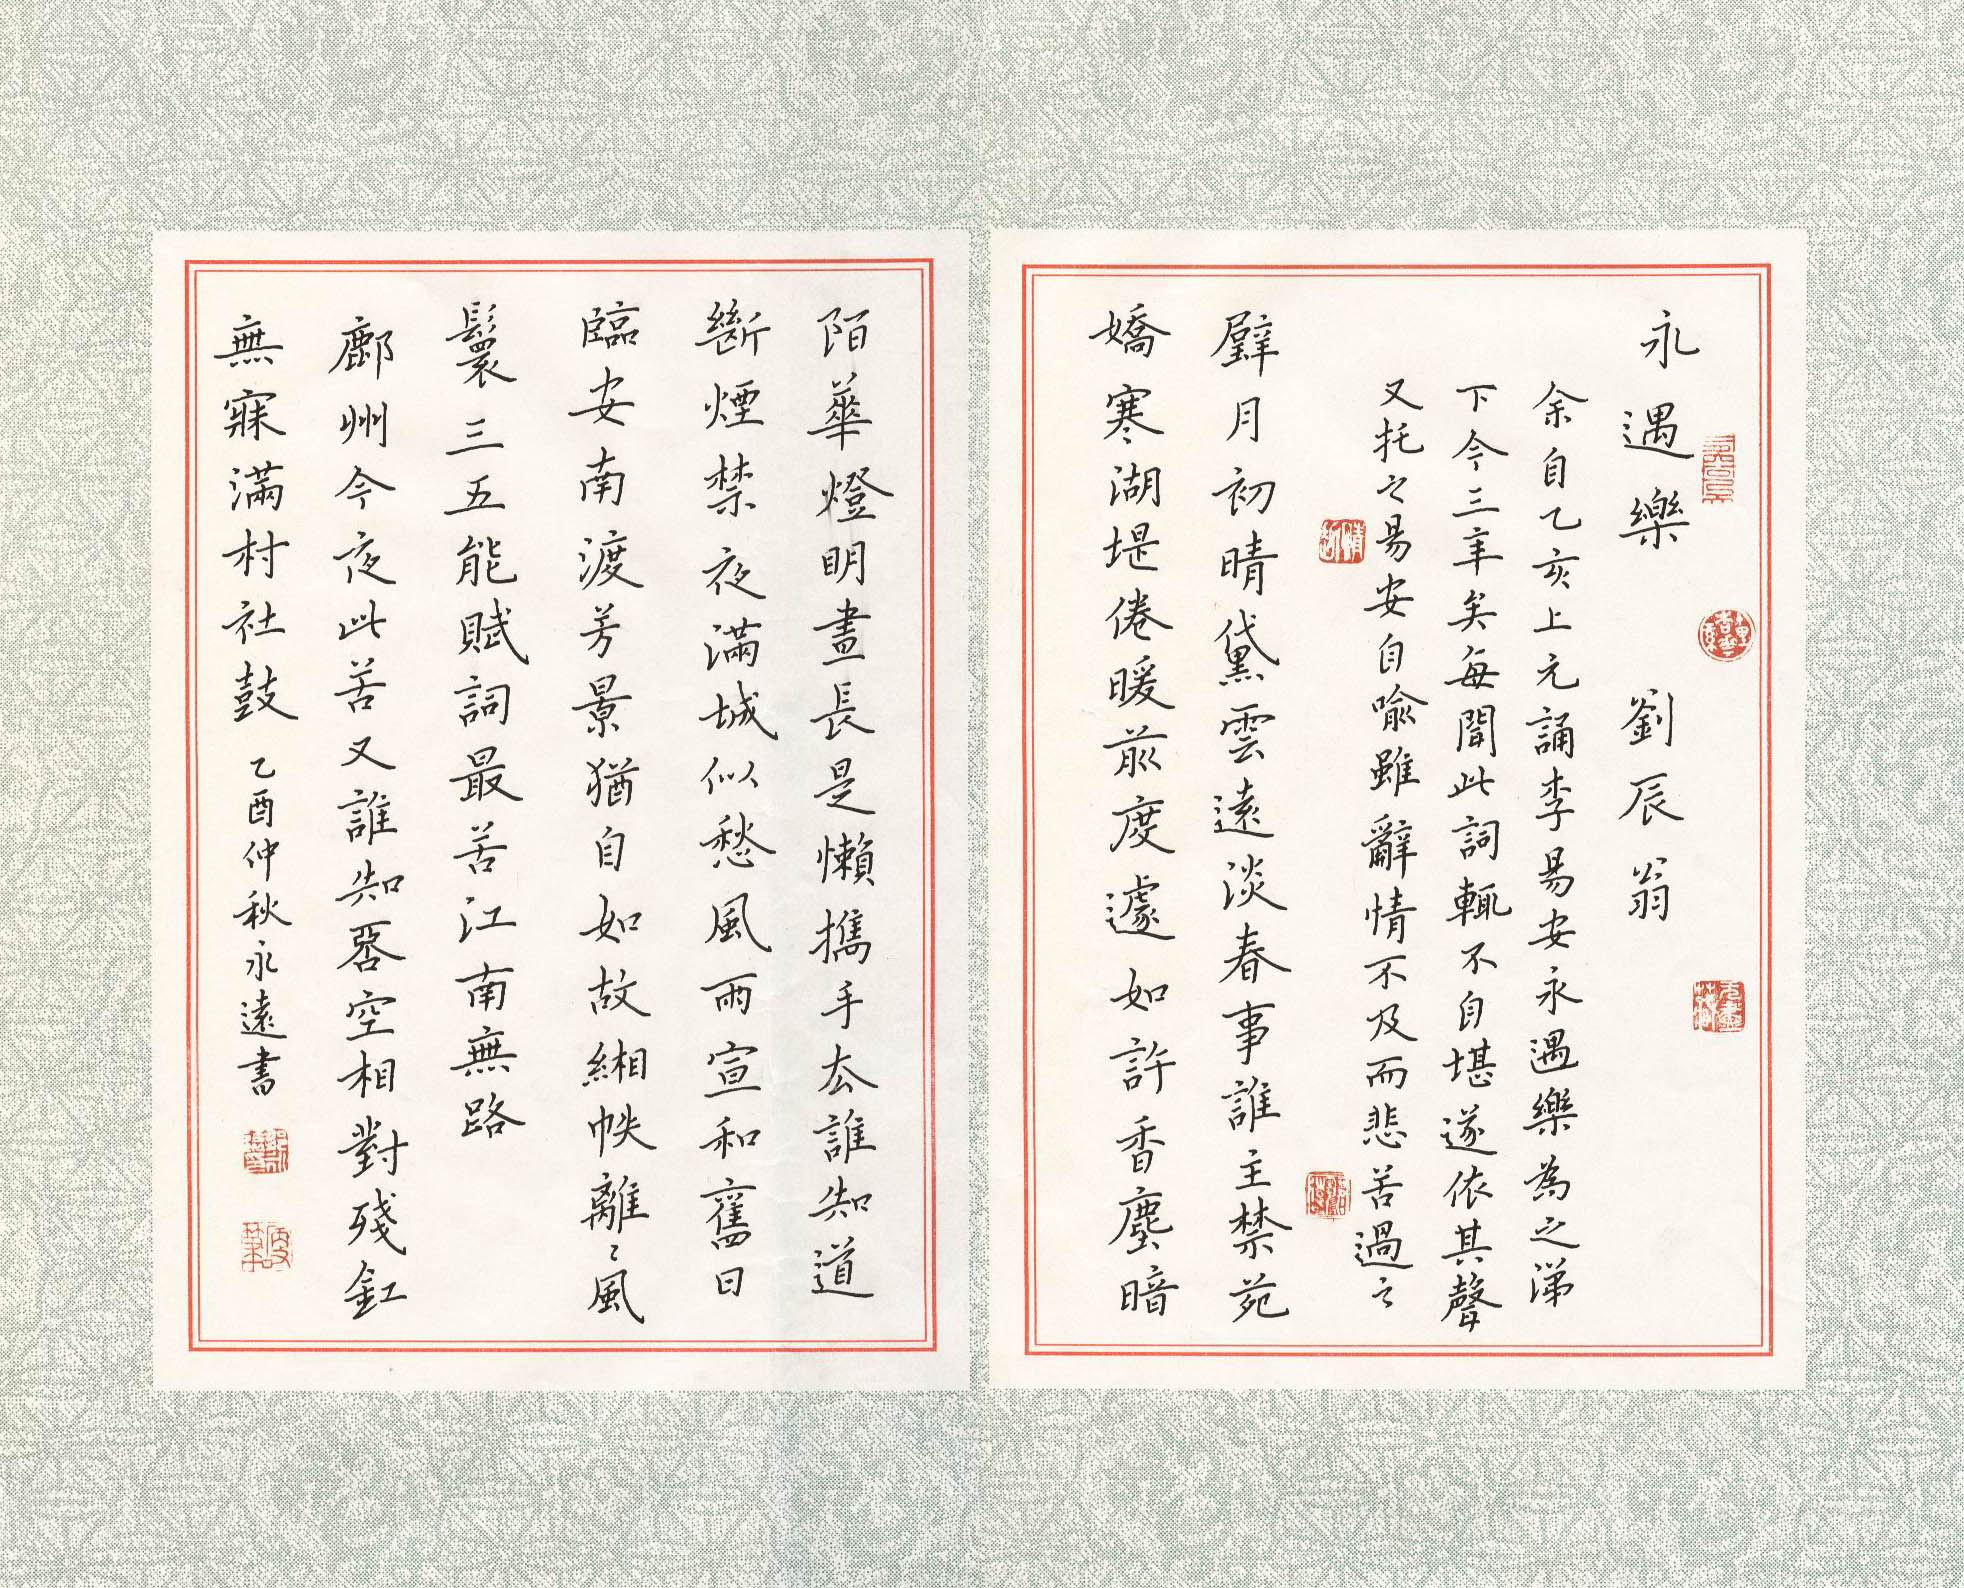 永遇樂 劉辰翁
余自乙亥上元誦李易安永遇樂為之涕
下今三年矣每聞此詞輒不自堪遂依其聲
又托之易安自喻雖辭情不及而悲苦過之
璧月初晴黛雲遠淡春事誰主禁苑
嬌寒湖堤倦暖前度遽如許香塵暗
陌華燈明晝長是懶攜手去誰知道
斷煙禁夜滿城似愁風雨宣和舊日
臨安南渡芳景猶自如故緗帙離〻風
鬟三五能賦詞最苦江南無路
鄜州今夜此苦又誰知否空相對殘釭
無寐滿村社鼓 乙酉仲秋永遠書